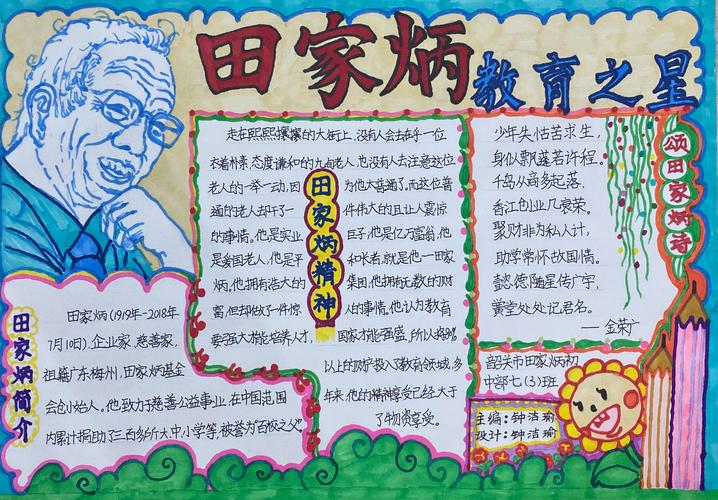 田家炳
教育之星
田家炳简介
田家炳(1919年-2018年
7月10日).企业家.慈善家,
祖籍广东梅州,田家炳基金
会创始人。他致力于慈善公益事业,在中国范围
内累计捐助了三百多所大.中.小学等,被誉为“百校之父”
田家炳精神
走在熙熙攘攘的大街上,没有人会去在乎一位
衣着朴素,态度谦和的九旬老人,也没有人去注意这位
老人的一举一动,因为他太普通了,而这位普
通的老人却干了一件伟大的且让人震惊
的事情。他是实业巨子,他是亿万富翁,他
是爱国老人,他是平和长者,就是他一田家
炳。他拥有浩大的集团,他拥有无数的财
富,但却做了一件惊人的事情。他认为教育
要强大才能培养人才,国家才能强盛,所以将够
以上的财产投入了教育领域,多
年来,他的精神享受已经大于
了物资享受。
颂田家炳诗
少年失怙苦求生,
身似飘蓬若许程。
千岛从商多起落,
香江创业几衰荣。
聚财非为私人计,
助学常怀故国情。
懿德随星传广宇,
黉堂处处记君名。
——金荣广
韶关市田家炳初
中部七(3)班
主编:钟洁瑜
设计:钟洁瑜